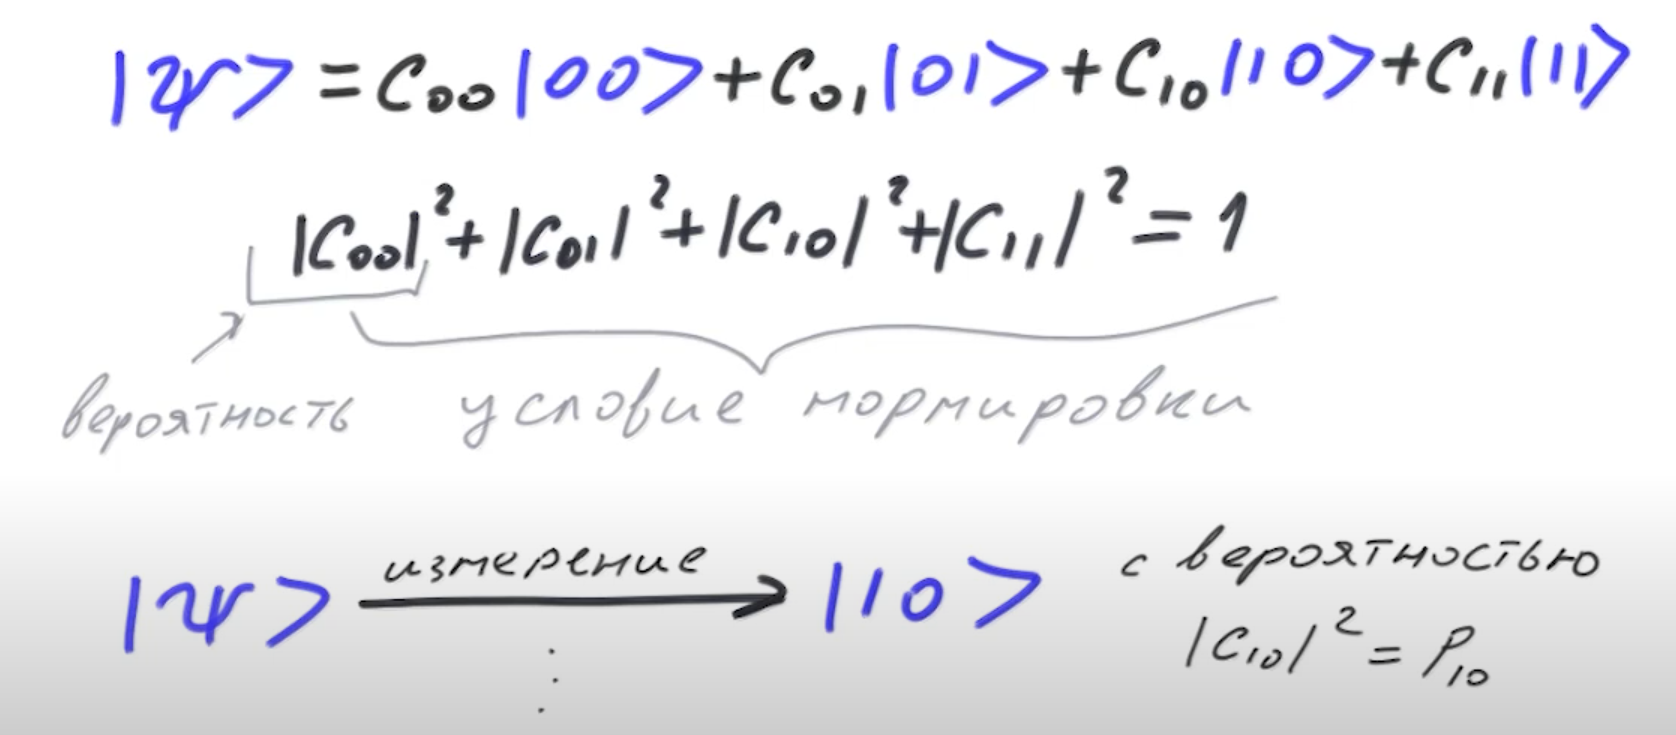 |ψ> = C₀₀|00> + C₀₁|01> + C₁₀|10> + C₁₁|11>
|C₀₀|² + |C₀₁|² + |C₁₀|² + |C₁₁|² = 1
вероятность условие нормировки
|ψ> измерение |10> с вероятностью
|C₁₀|² = P₁₀